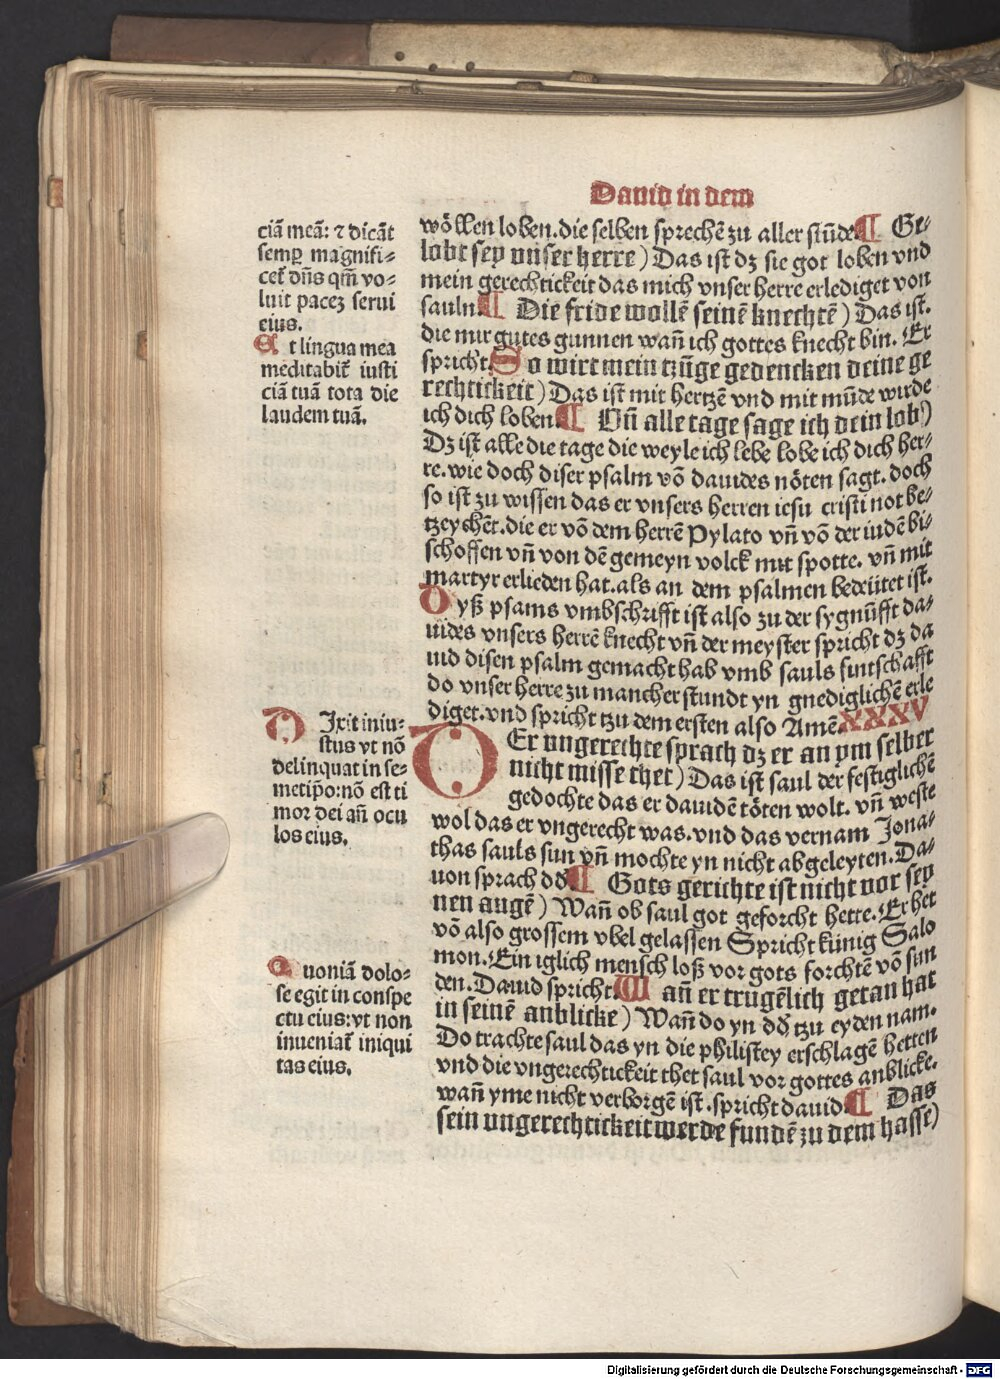 Dauid in dem
ciā meā: ⁊ dicāt
semꝑ magnifi⸗
cet̄ dn̄s qm̄ vo⸗
luit pacez serui
eius.
Et lingua mea
meditabit̄ iusti
ciā tuā tota die
laudem tuā.
Dixit iniu⸗
stus vt nō
delinquat in se⸗
metip̄o: nō est ti
mor dei an̄ ocu
los eius.
Quoniā dolo⸗
se egit in conspe
ctu eius: vt non
inueniat̄ iniqui
tas eius.
wöllen loben. die selben sprechē zu aller stūde ¶ Ge⸗
lobt sey vnser herre) Das ist dz sie got loben vnd
mein gerechtickeit das mich vnser herre erlediget von
sauln ¶ Die fride wollē seinē knechtē) Das ist.
die mir gutes gunnen wañ ich gottes knecht bin. Er
spricht. So wirt mein tzūge gedencken deine ge
rechtickeit) Das ist mit hertzē vnd mit mūde wurde
ich dich loben ¶ Vñ alle tage sage ich dein lob)
Dz ist alle die tage die weyle ich lebe lobe ich dich her⸗
re. wie doch diser psalm vō dauides nöten sagt. doch
so ist zu wissen das er vnsers herren iesu cristi not be⸗
tzeychēt. die er vō dem herrē Pylato vñ vō der iudē bi⸗
schoffen vñ von dē gemeyn volck mit spotte. vñ mit
martyr erlieden hat. als an dem psalmen bedeütet ist.
Dyß psams vmbschrifft ist also zu der sygnüfft da⸗
uides vnsers herrē knecht vñ der meyster spricht dz da
uid disen psalm gemacht hab vmb sauls fintschafft
do vnser herre zu mancher stundt yn gnediglichē erle
diget. vnd spricht tzu dem ersten also Amē XXXV
DEr vngerechte sprach dz er an ym selber
nicht misse thet) Das ist saul der festiglichē
gedochte das er dauidē töten wolt. vñ weste
wol das er vngerecht was. vnd das vernam Jona⸗
thas sauls sun vñ mochte yn nicht abgeleyten. Da⸗
uon sprach dd̄ ¶ Gots gerichte ist nicht vor sey
nen augē) Wañ ob saul got geforcht hette. Er het
vō also grossem vbel gelassen Spricht künig Salo
mon. Ein iglich mensch loß vor gots forchtē vō sun
den. Dauid spricht. Wañ er trugēlich getan hat
in seinē anblicke) Wañ do yn dd̄ tzu eyden nam.
Do trachte saul das yn die philistey erschlagē hetten
vnd die vngerechtickeit thet saul vor gottes anblicke.
wañ yme nicht verborgē ist. spricht dauid ¶ Das
sein vngerechtickeit werde fundē zu dem hasse)
Digitalisierung gefördert durch die Deutsche Forschungsgemeinschaft - DFG